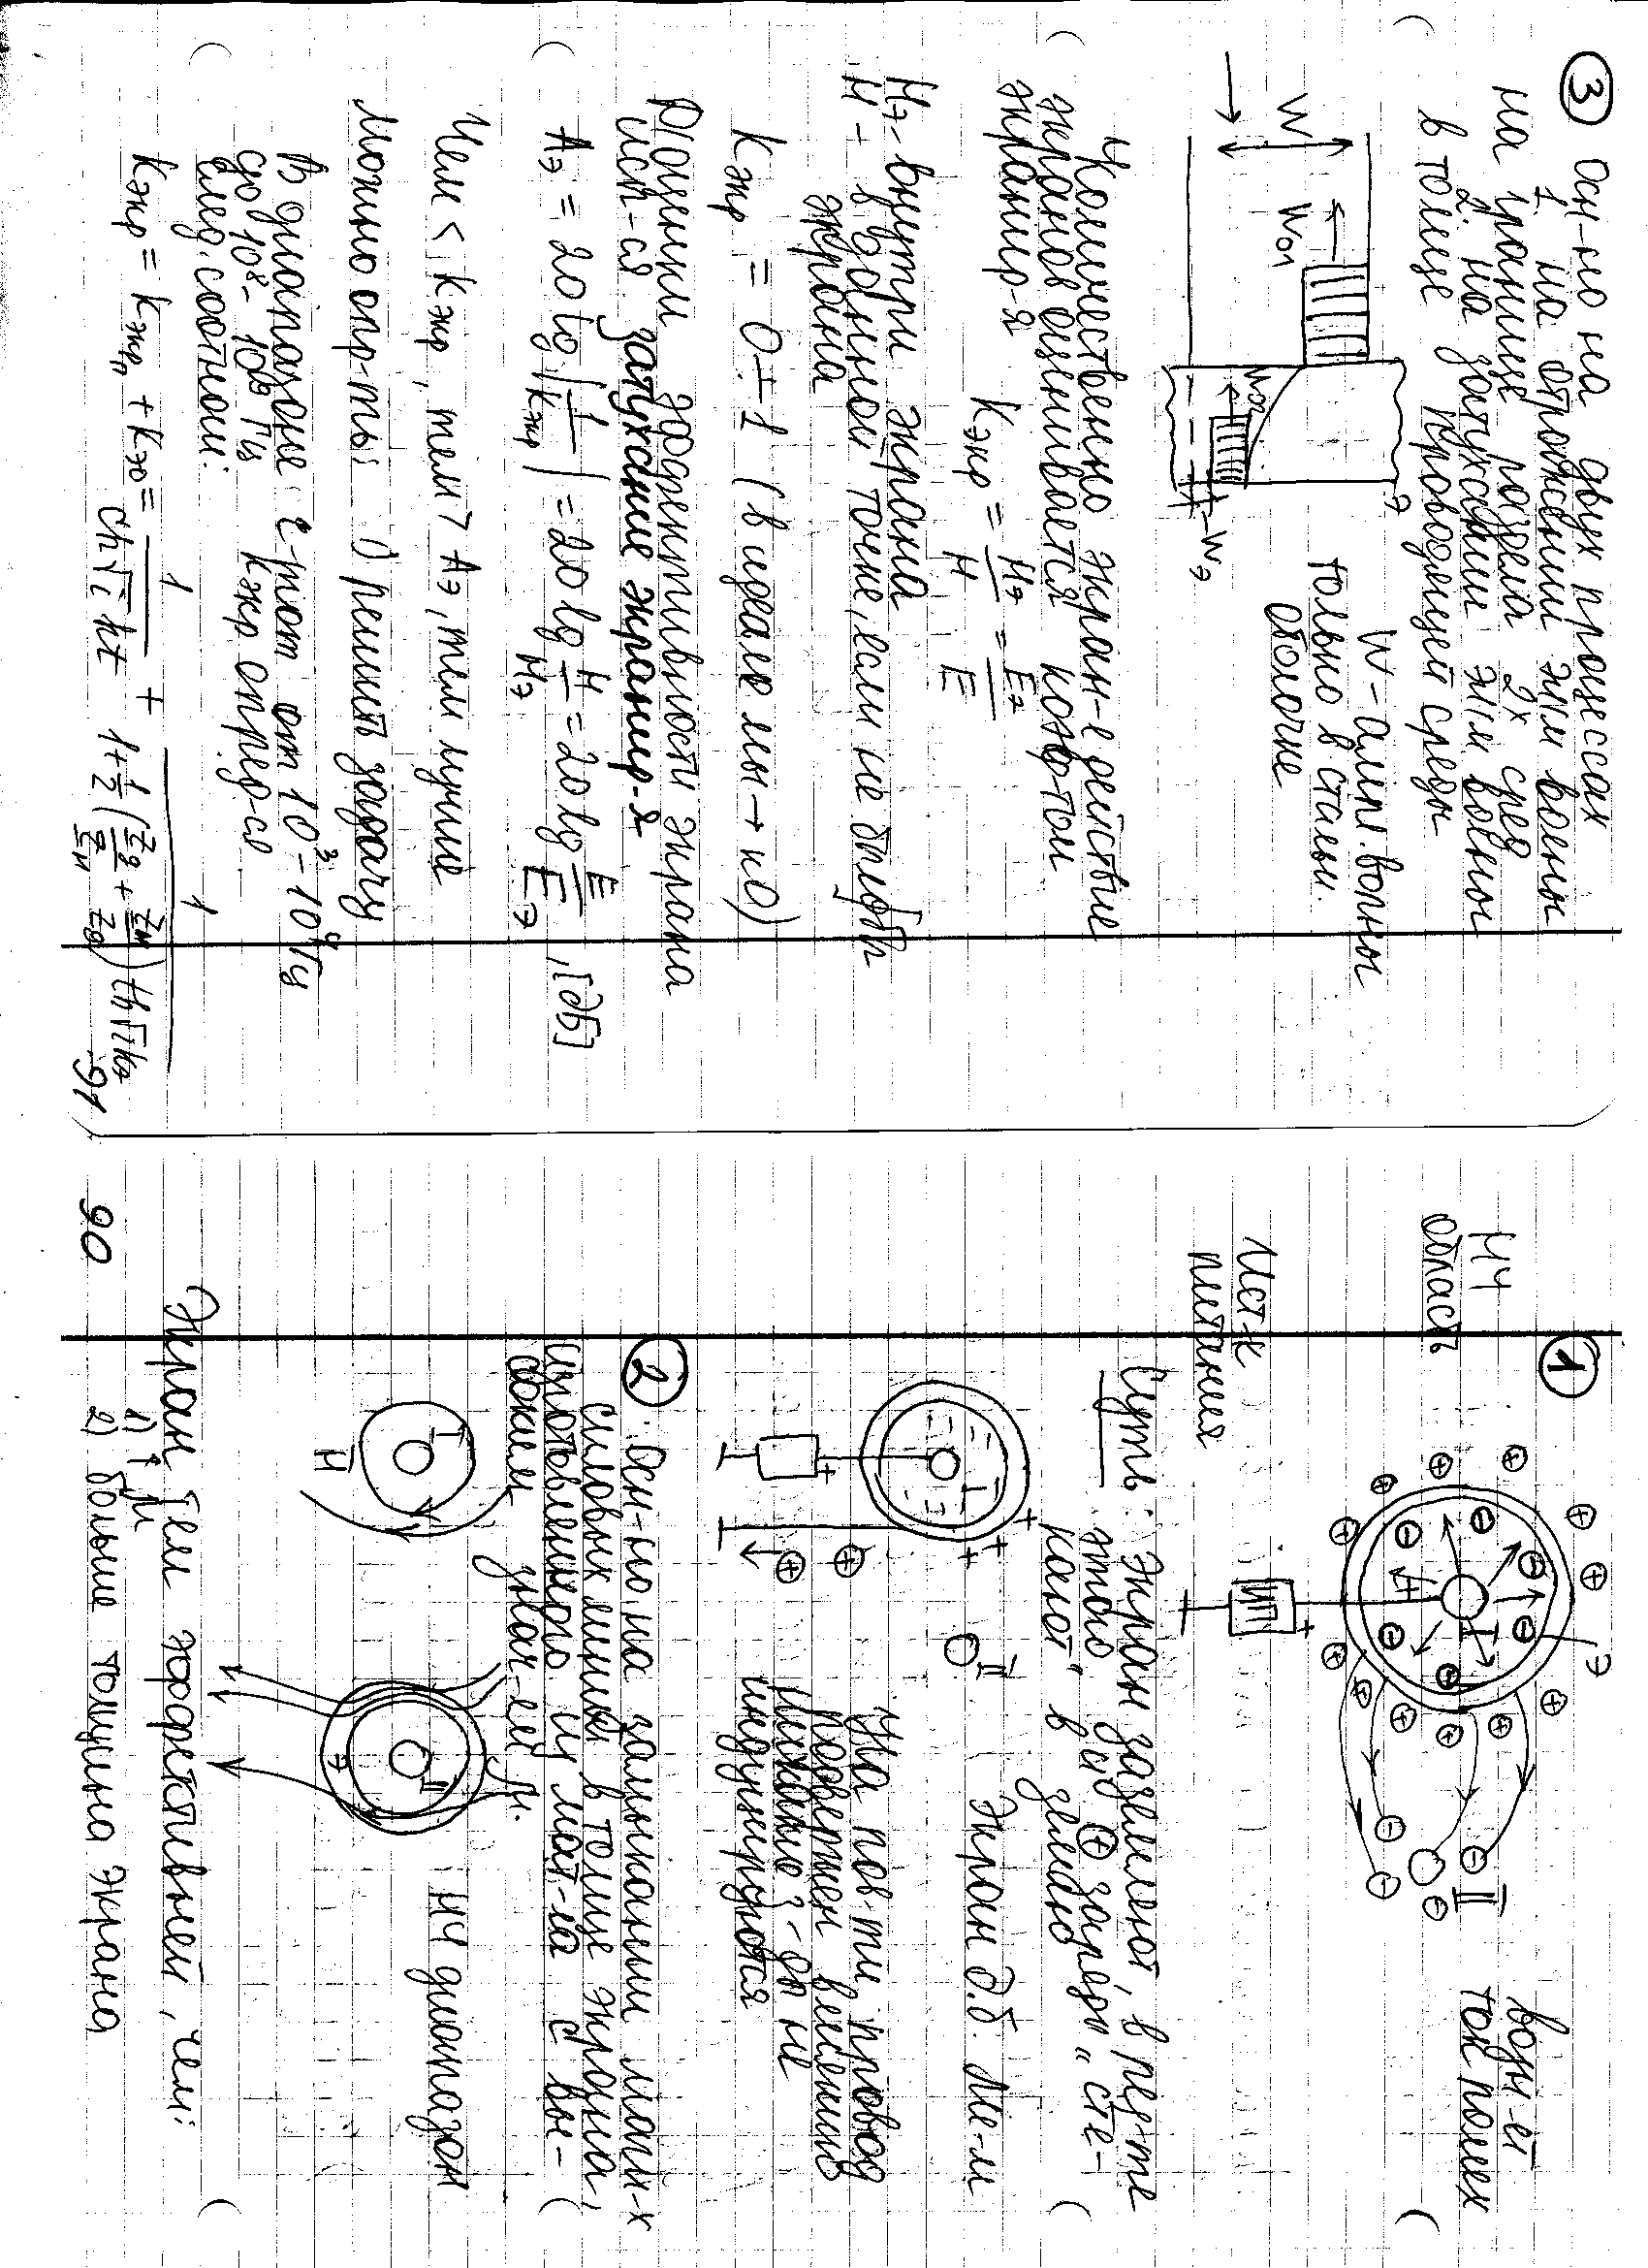 ③ Осн-но на двух процессах
1. на отражении ЭМ волны
на границе раздела 2х сред
2. на затухании ЭМ волны
в толще проводящей среды
W
W01
W02
Э
Wэ
W - ампл. волны
только в стальн.
оболочке
Количественно экран-е действие
экранов оценивается коэф-том
экранир-я
Kэкр = Hэ/H = Eэ/E
Hэ - внутри экрана
H - в данной точке, если не было бы
экрана
Kэкр = 0÷1 (в идеале мы → к 0)
Д/оценки эффективности экрана
исп-ся затухание экранир-я
Aэ = 20 lg |1/Kэкр| = 20 lg H/Hэ = 20 lg E/Eэ, [дБ]
Чем < Kэкр, тем > Aэ, тем лучше
Можно опр-ть: решить задачу
В диапазоне с-тот от 10³ - 10⁹ Гц
до 10⁸ - 10⁹ Гц Kэкр опред-ся
след. соотнош:
Kэкр = Kэкрп + Kэо = 1/ch√i kt + 1/1+½(Zд/Zм + Zм/Zд) th√i kt
91
90
НЧ
область
①
Э
I
II
Ист-к
питания
ИП
возн-ет
ток помех
Суть: Экран заземлют, в рез-те
этого все ⊕ заряды "сте-
кают" в землю
I
II
Экран д.б. Ме-м
На пов-ти, провод
подвержен внешнию
индуцируются
② Осн-но на замыкании магн-х
силовых линий в толще экрана,
изготовленного из мат-ла с вы-
соким знач-ем μ.
I
H
Э
II
НЧ диапазон
Экран тем эффективней, чем:
1) ↑ μ
2) больше толщина экрана